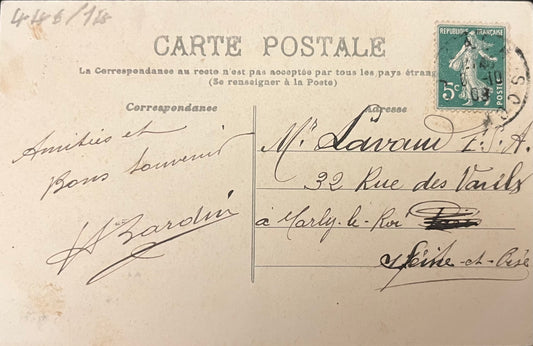 446/14
CARTE POSTALE
La Correspondance au recto n'est pas acceptée par tous les pays étrang
(Se renseigner à la Poste)
Correspondance
Adresse
RÉPUBLIQUE FRANÇAISE
5c
POSTES
10
09
Amitiés et
Bons souvenir
Bardin
Mr Lavaud
32 Rue des Vaulx
à Marly-le-Roi
Seine-et-Oise